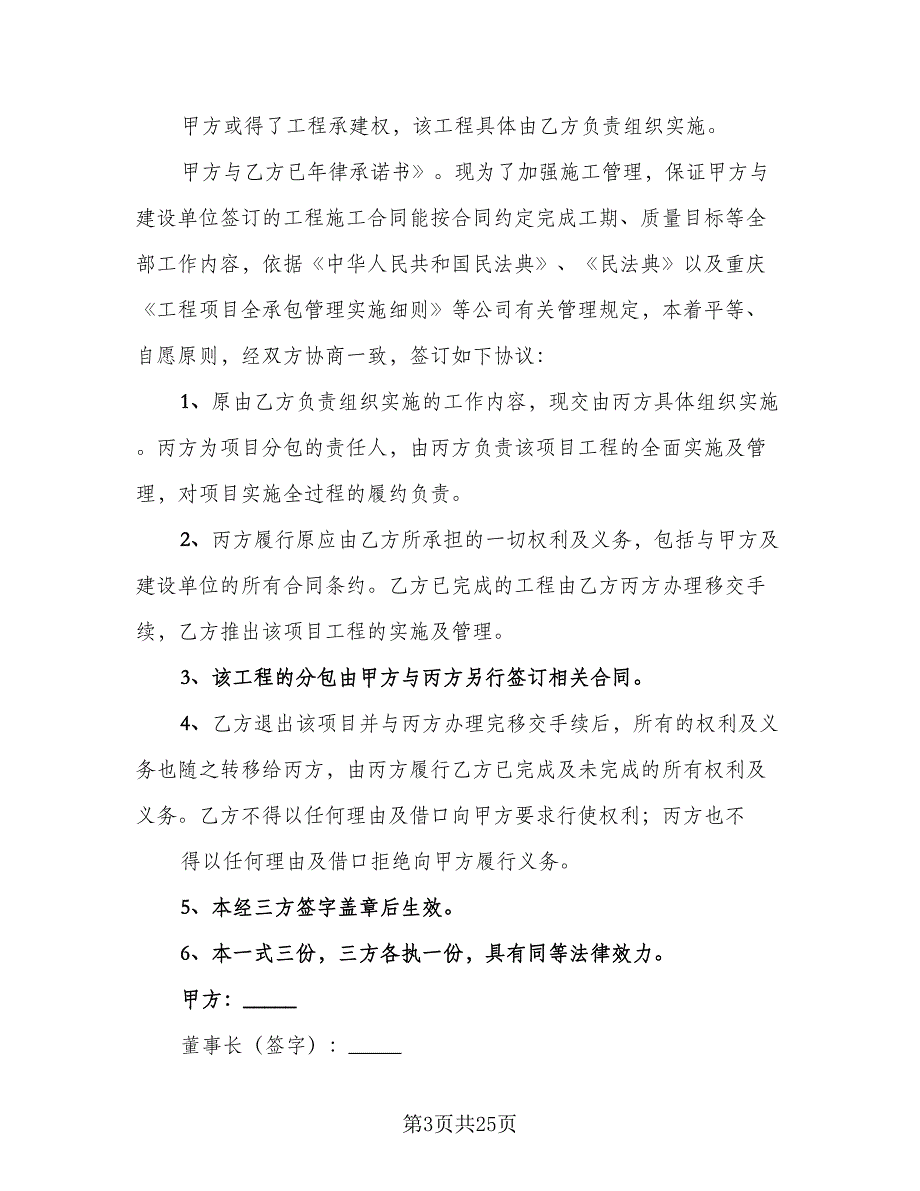 甲方或得了工程承建权，该工程具体由乙方负责组织实施。
甲方与乙方已年律承诺书》。现为了加强施工管理，保证甲方与
建设单位签订的工程施工合同能按合同约定完成工期、质量目标等全
部工作内容，依据《中华人民共和国民法典》、《民法典》以及重庆
《工程项目全承包管理实施细则》等公司有关管理规定，本着平等、
自愿原则，经双方协商一致，签订如下协议：
1、原由乙方负责组织实施的工作内容，现交由丙方具体组织实施
。丙方为项目分包的责任人，由丙方负责该项目工程的全面实施及管
理，对项目实施全过程的履约负责。
2、丙方履行原应由乙方所承担的一切权利及义务，包括与甲方及
建设单位的所有合同条约。乙方已完成的工程由乙方丙方办理移交手
续，乙方推出该项目工程的实施及管理。
3、该工程的分包由甲方与丙方另行签订相关合同。
4、乙方退出该项目并与丙方办理完移交手续后，所有的权利及义
务也随之转移给丙方，由丙方履行乙方已完成及未完成的所有权利及
义务。乙方不得以任何理由及借口向甲方要求行使权利；丙方也不
得以任何理由及借口拒绝向甲方履行义务。
5、本经三方签字盖章后生效。
6、本一式三份，三方各执一份，具有同等法律效力。
甲方：_____
董事长（签字）：_____
第3页共25页